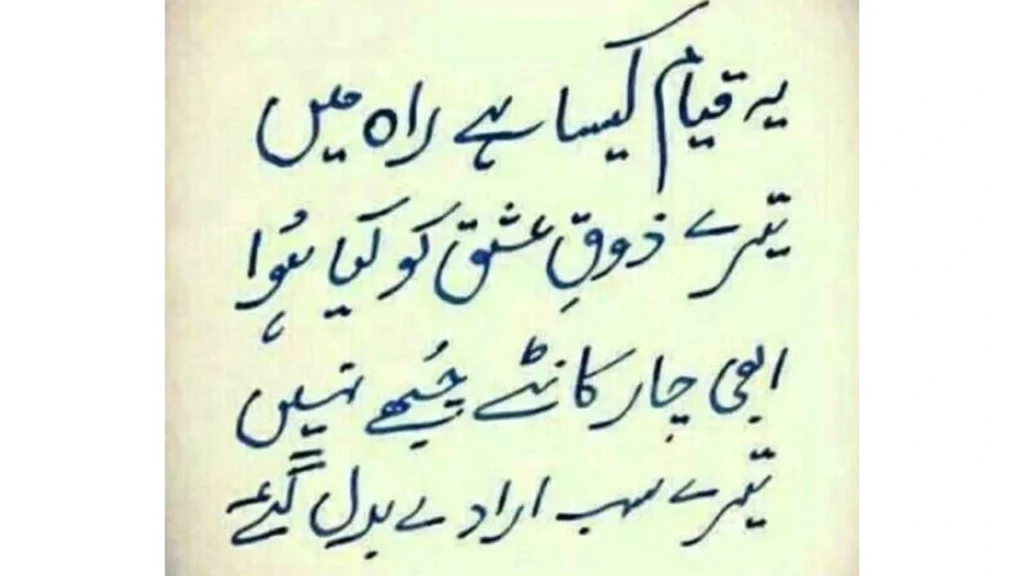 یہ قیام کیسا ہے راہ میں
تیرے ذوقِ عشق کو کیا ہُوا
ابھی چار کانٹے چُبھے نہیں
تیرے سب ارادے بدل گئے